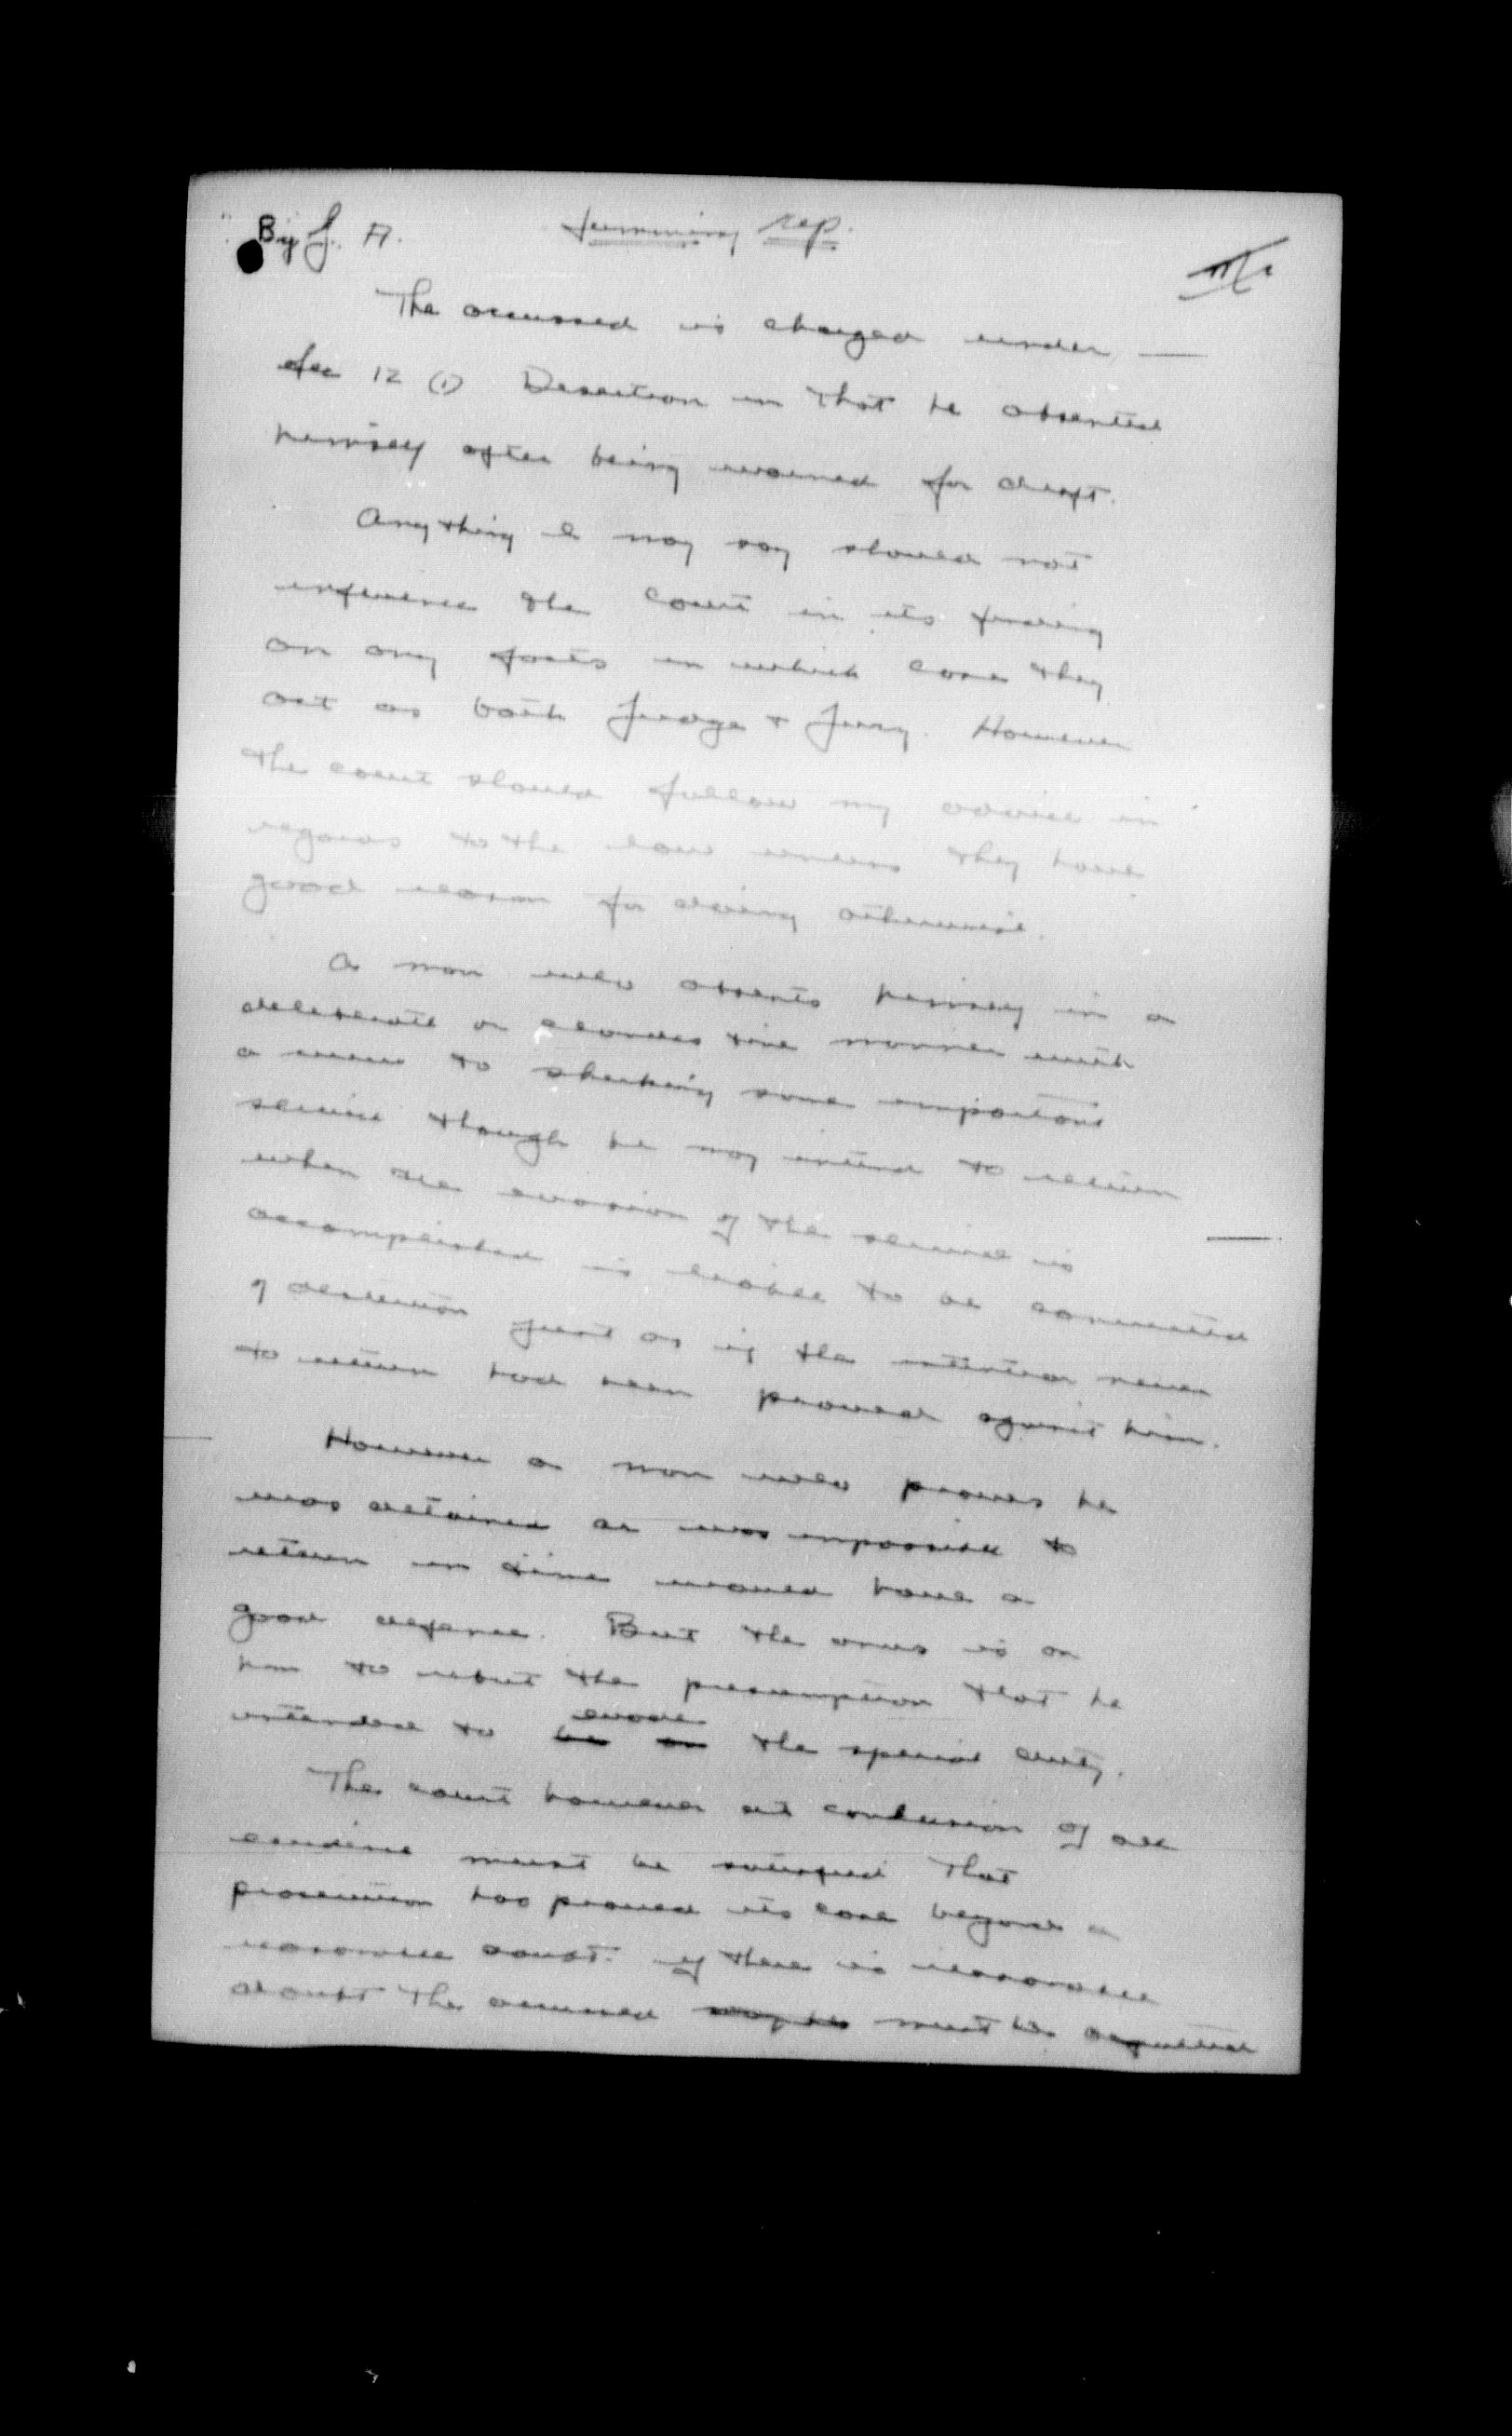 By J. A. Summing up.
The accused is charged under
Sec 12 (1) Desertion in that he absented
himself after being warned for draft.
Anything I may say should not
influence the Court in its finding
on any facts in which case they
act as both Judge + Jury. However
the court should follow my advice in
regards to the law unless they have
good reason for doing otherwise.
A man who absents himself in a
deliberate or clandestine manner with
a view to shirking some important
service though he may intend to return
when the evasion of the service is
accomplished is liable to be convicted
of desertion just as if the intention never
to return had been proved against him.
However a man who proves he
was detained or was impossible to
return in time would have a
good defence. But the onus is on
him to rebut the presumption that he
evade
intended to be on the special duty.
The court however at conclusion of all
evidence must be satisfied that
prosecution has proved its case beyond a
reasonable doubt. If there is reasonable
doubt the accused may be must be acquitted